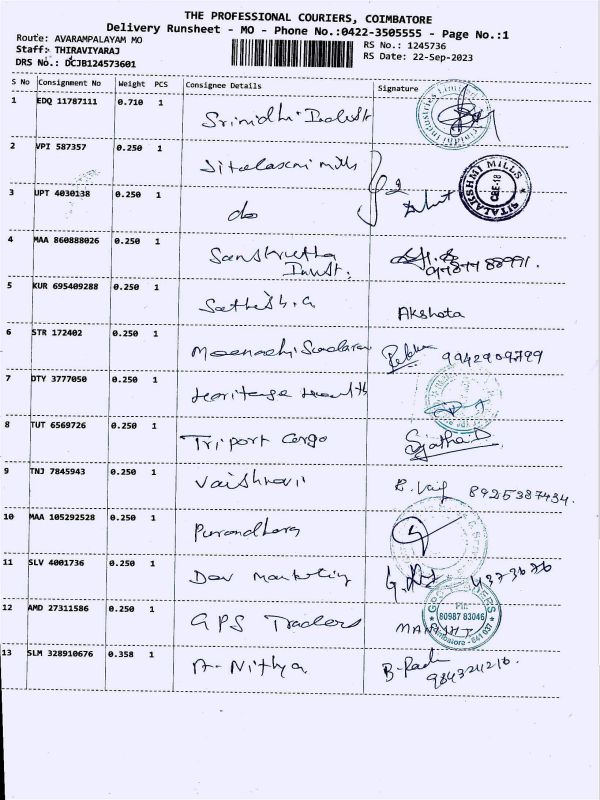 THE PROFESSIONAL COURIERS, COIMBATORE
Delivery Runsheet - MO - Phone No.:0422-3505555 - Page No.:1
Route: AVARAMPALAYAM MO
RS No.: 1245736
Staff: THIRAVIYARAJ
RS Date: 22-Sep-2023
DRS No.: DCJB124573601
S No Consignment No Weight PCS Consignee Details Signature
1 EDQ 11787111 0.710 1
Srinidhi Indust
2 VPI 587357 0.250 1
Sitalaxmi mills
SITALAKSHMI MILLS
CBE-18
3 UPT 4030138 0.250 1
do
4 MAA 860888026 0.250 1
Sanskrutha
Indust.
5 KUR 695409288 0.250 1
Sathish. G
Akshata
6 STR 172402 0.250 1
Meenachi Sundaram
9942909799
7 DTY 3777050 0.250 1
Heritage Health
8 TUT 6569726 0.250 1
Triport Cargo
Sujatha D
9 TNJ 7845943 0.250 1
Vaishnavi
8925387434.
10 MAA 105292528 0.250 1
Purandhara
11 SLV 4001736 0.250 1
Dev Marketing
4373676
12 AMD 27311586 0.250 1
GPS Traders
Ph:
80987 83046
Coimbatore - 641 037
13 SLM 328910676 0.358 1
A- Nithya
984324216.